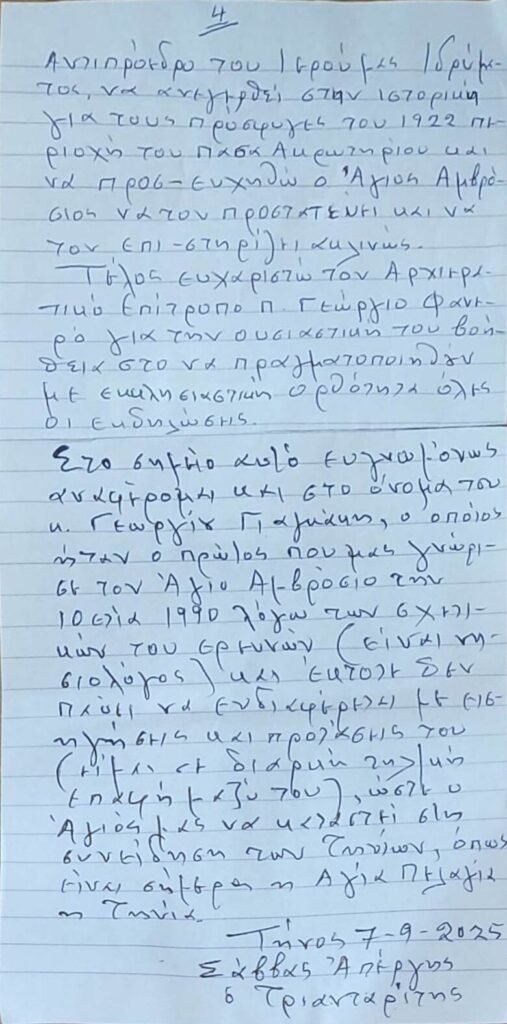 4
Αντιπρόεδρο του Ιερού μας Ιδρύμα-
τος, να ανεγερθεί στην ιστορική
για τους πρόσφυγες του 1922 πε-
ριοχή του Πασά Ακρωτηρίου και
να προσ-ευχηθώ ο Άγιος Αμβρό-
σιος να τον προστατεύει και να
τον επι-στηρίζει ακλινώς.
Τέλος ευχαριστώ τον Αρχιερα-
τικό Επίτροπο π. Γεώργιο Φανε-
ρό για την ουσιαστική του βοή-
θεια στο να πραγματοποιηθούν
με εκκλησιαστική ορθότητα όλες
οι εκδηλώσεις.
Στο σημείο αυτό ευγνωμόνως
αναφέρομαι και στο όνομα του
κ. Γεωργίου Γιαγκάκη, ο οποίος
ήταν ο πρώτος που μας γνώρι-
σε τον Άγιο Αμβρόσιο την
10ετία 1990 λόγω των σχετι-
κών του ερευνών (είναι νη-
σιολόγος) και έκτοτε δεν
παύει να ενδιαφέρεται με εισ-
ηγήσεις και προτάσεις του
(είμαι σε διαρκή τηλ/κή
επαφή μαζύ του), ώστε ο
Άγιός μας να καταστεί στη
συνείδηση των Τηνίων, όπως
είναι σήμερα η Αγία Πελαγία
η Τηνία.
Τήνος 7-9-2025
Σάββας Απέργης
ο Τριανταρίτης